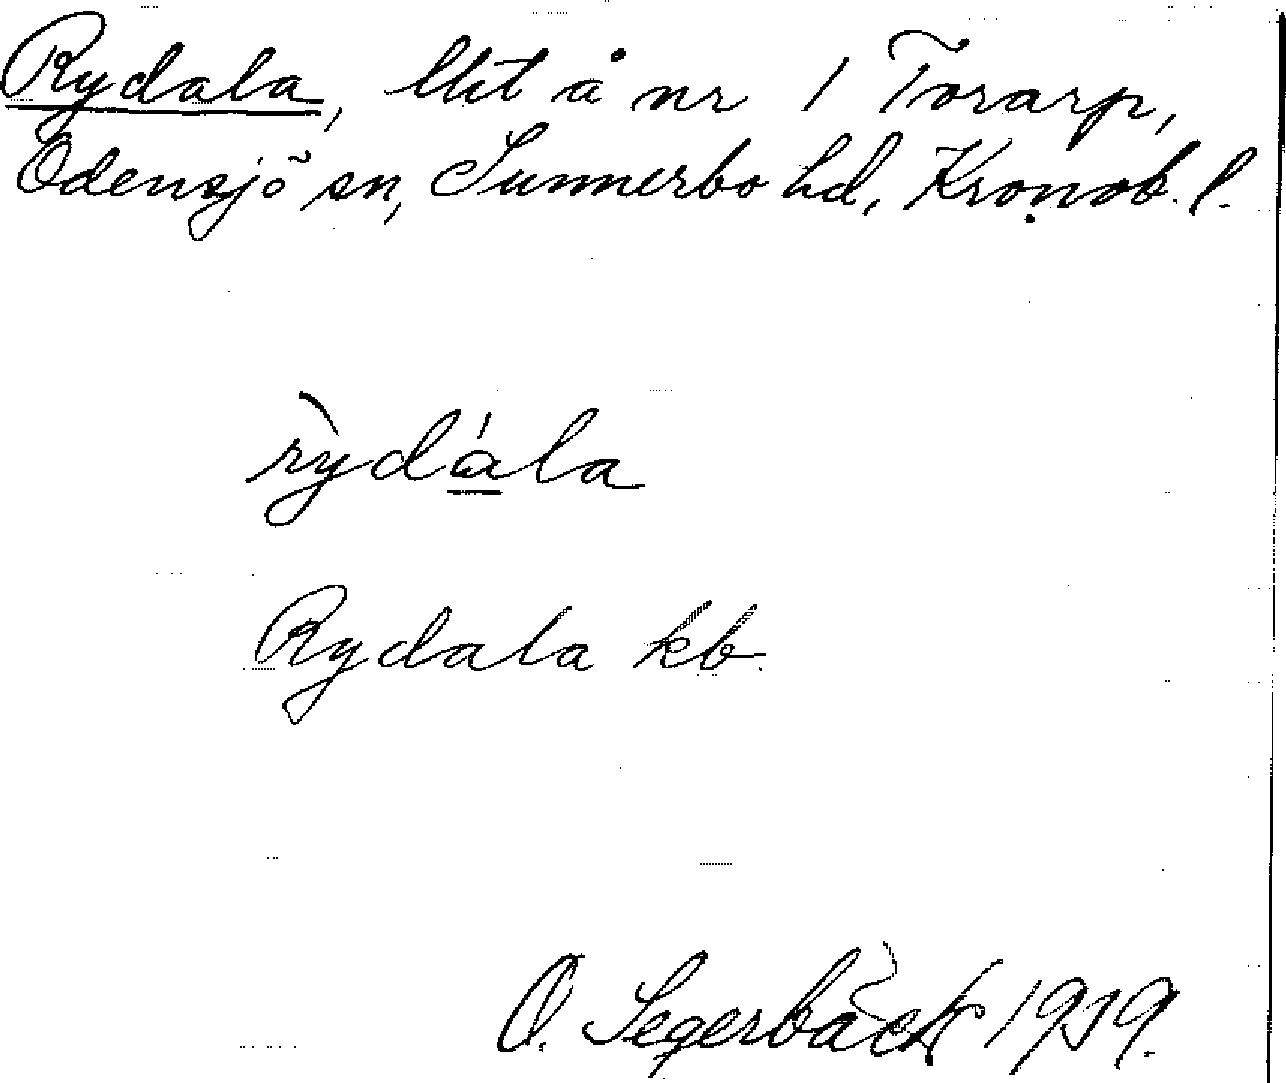 Rydala, lht å nr 1 Torarp,
Odensjö sn, Sunnerbo hd, Kronob. l.
rỳdála
Rydala kb.
O. Segerbäck 1919.